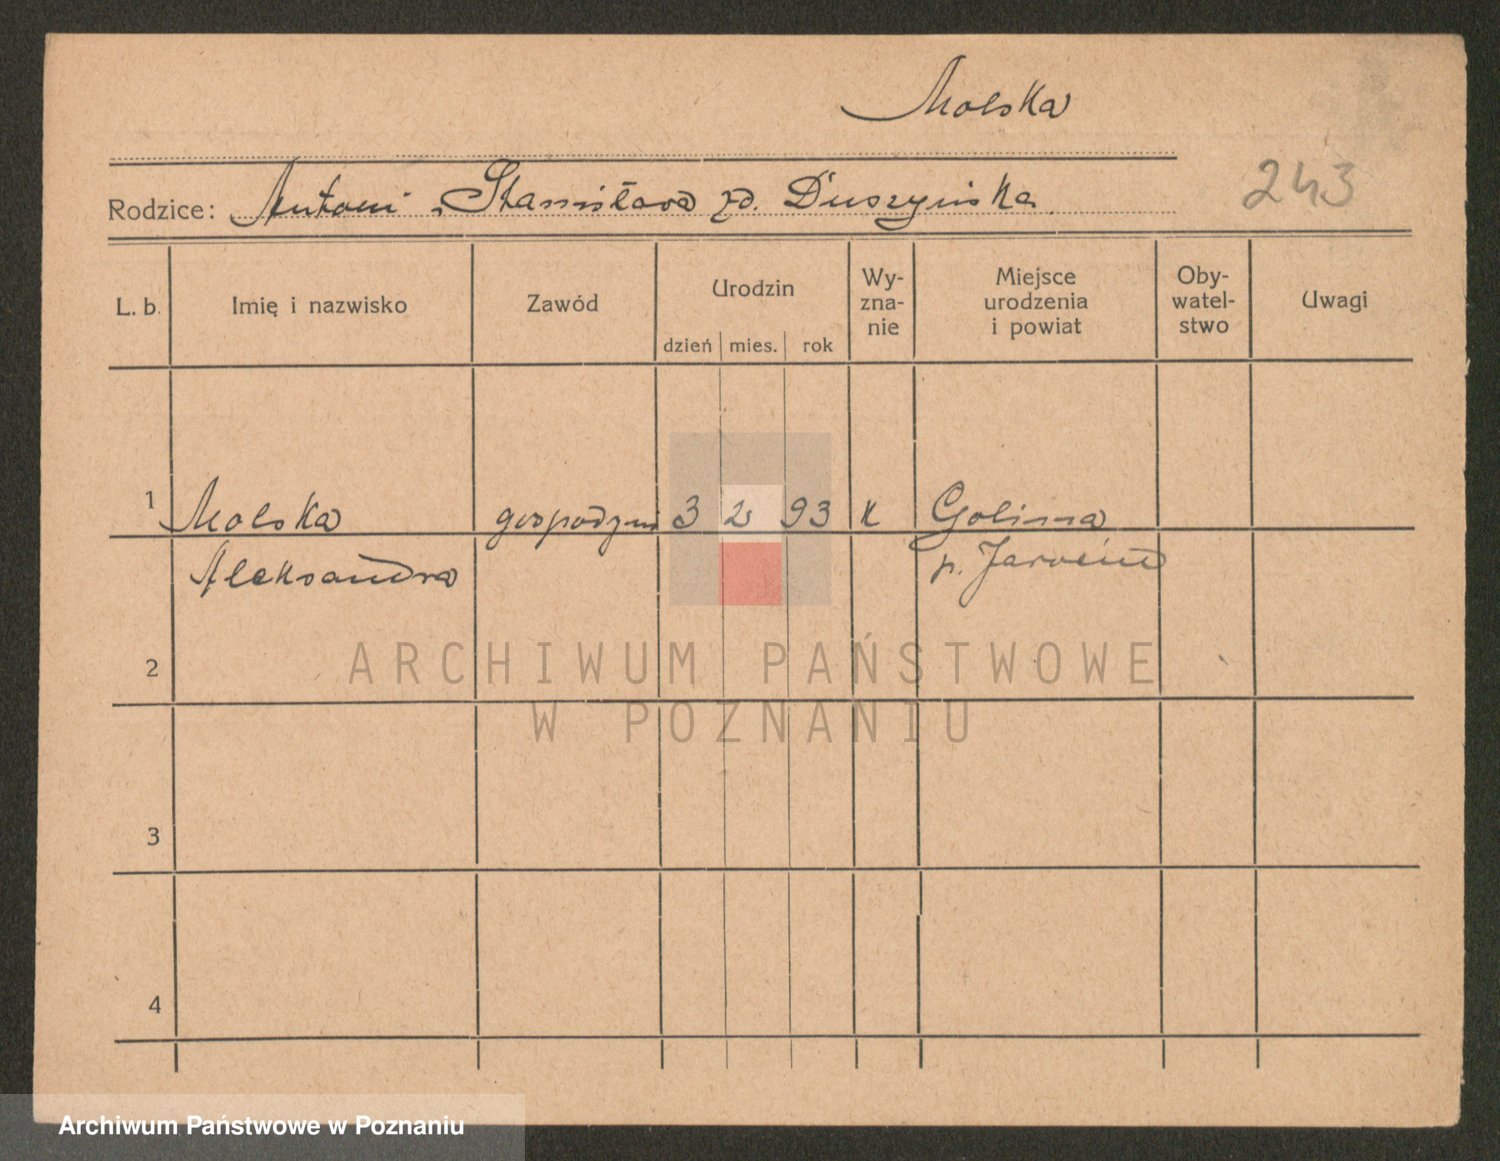 Molska
Rodzice: Antoni i Stanisława zd. Duszyńska
243
L. b. Imię i nazwisko Zawód Urodzin dzień mies. rok Wy-zna-nie Miejsce urodzenia i powiat Oby-watel-stwo Uwagi
1 Molska gospodyni 3 2 93 K Golina
Aleksandra p. Jarocin
2
3
4
ARCHIWUM PAŃSTWOWE
W POZNANIU
Archiwum Państwowe w Poznaniu